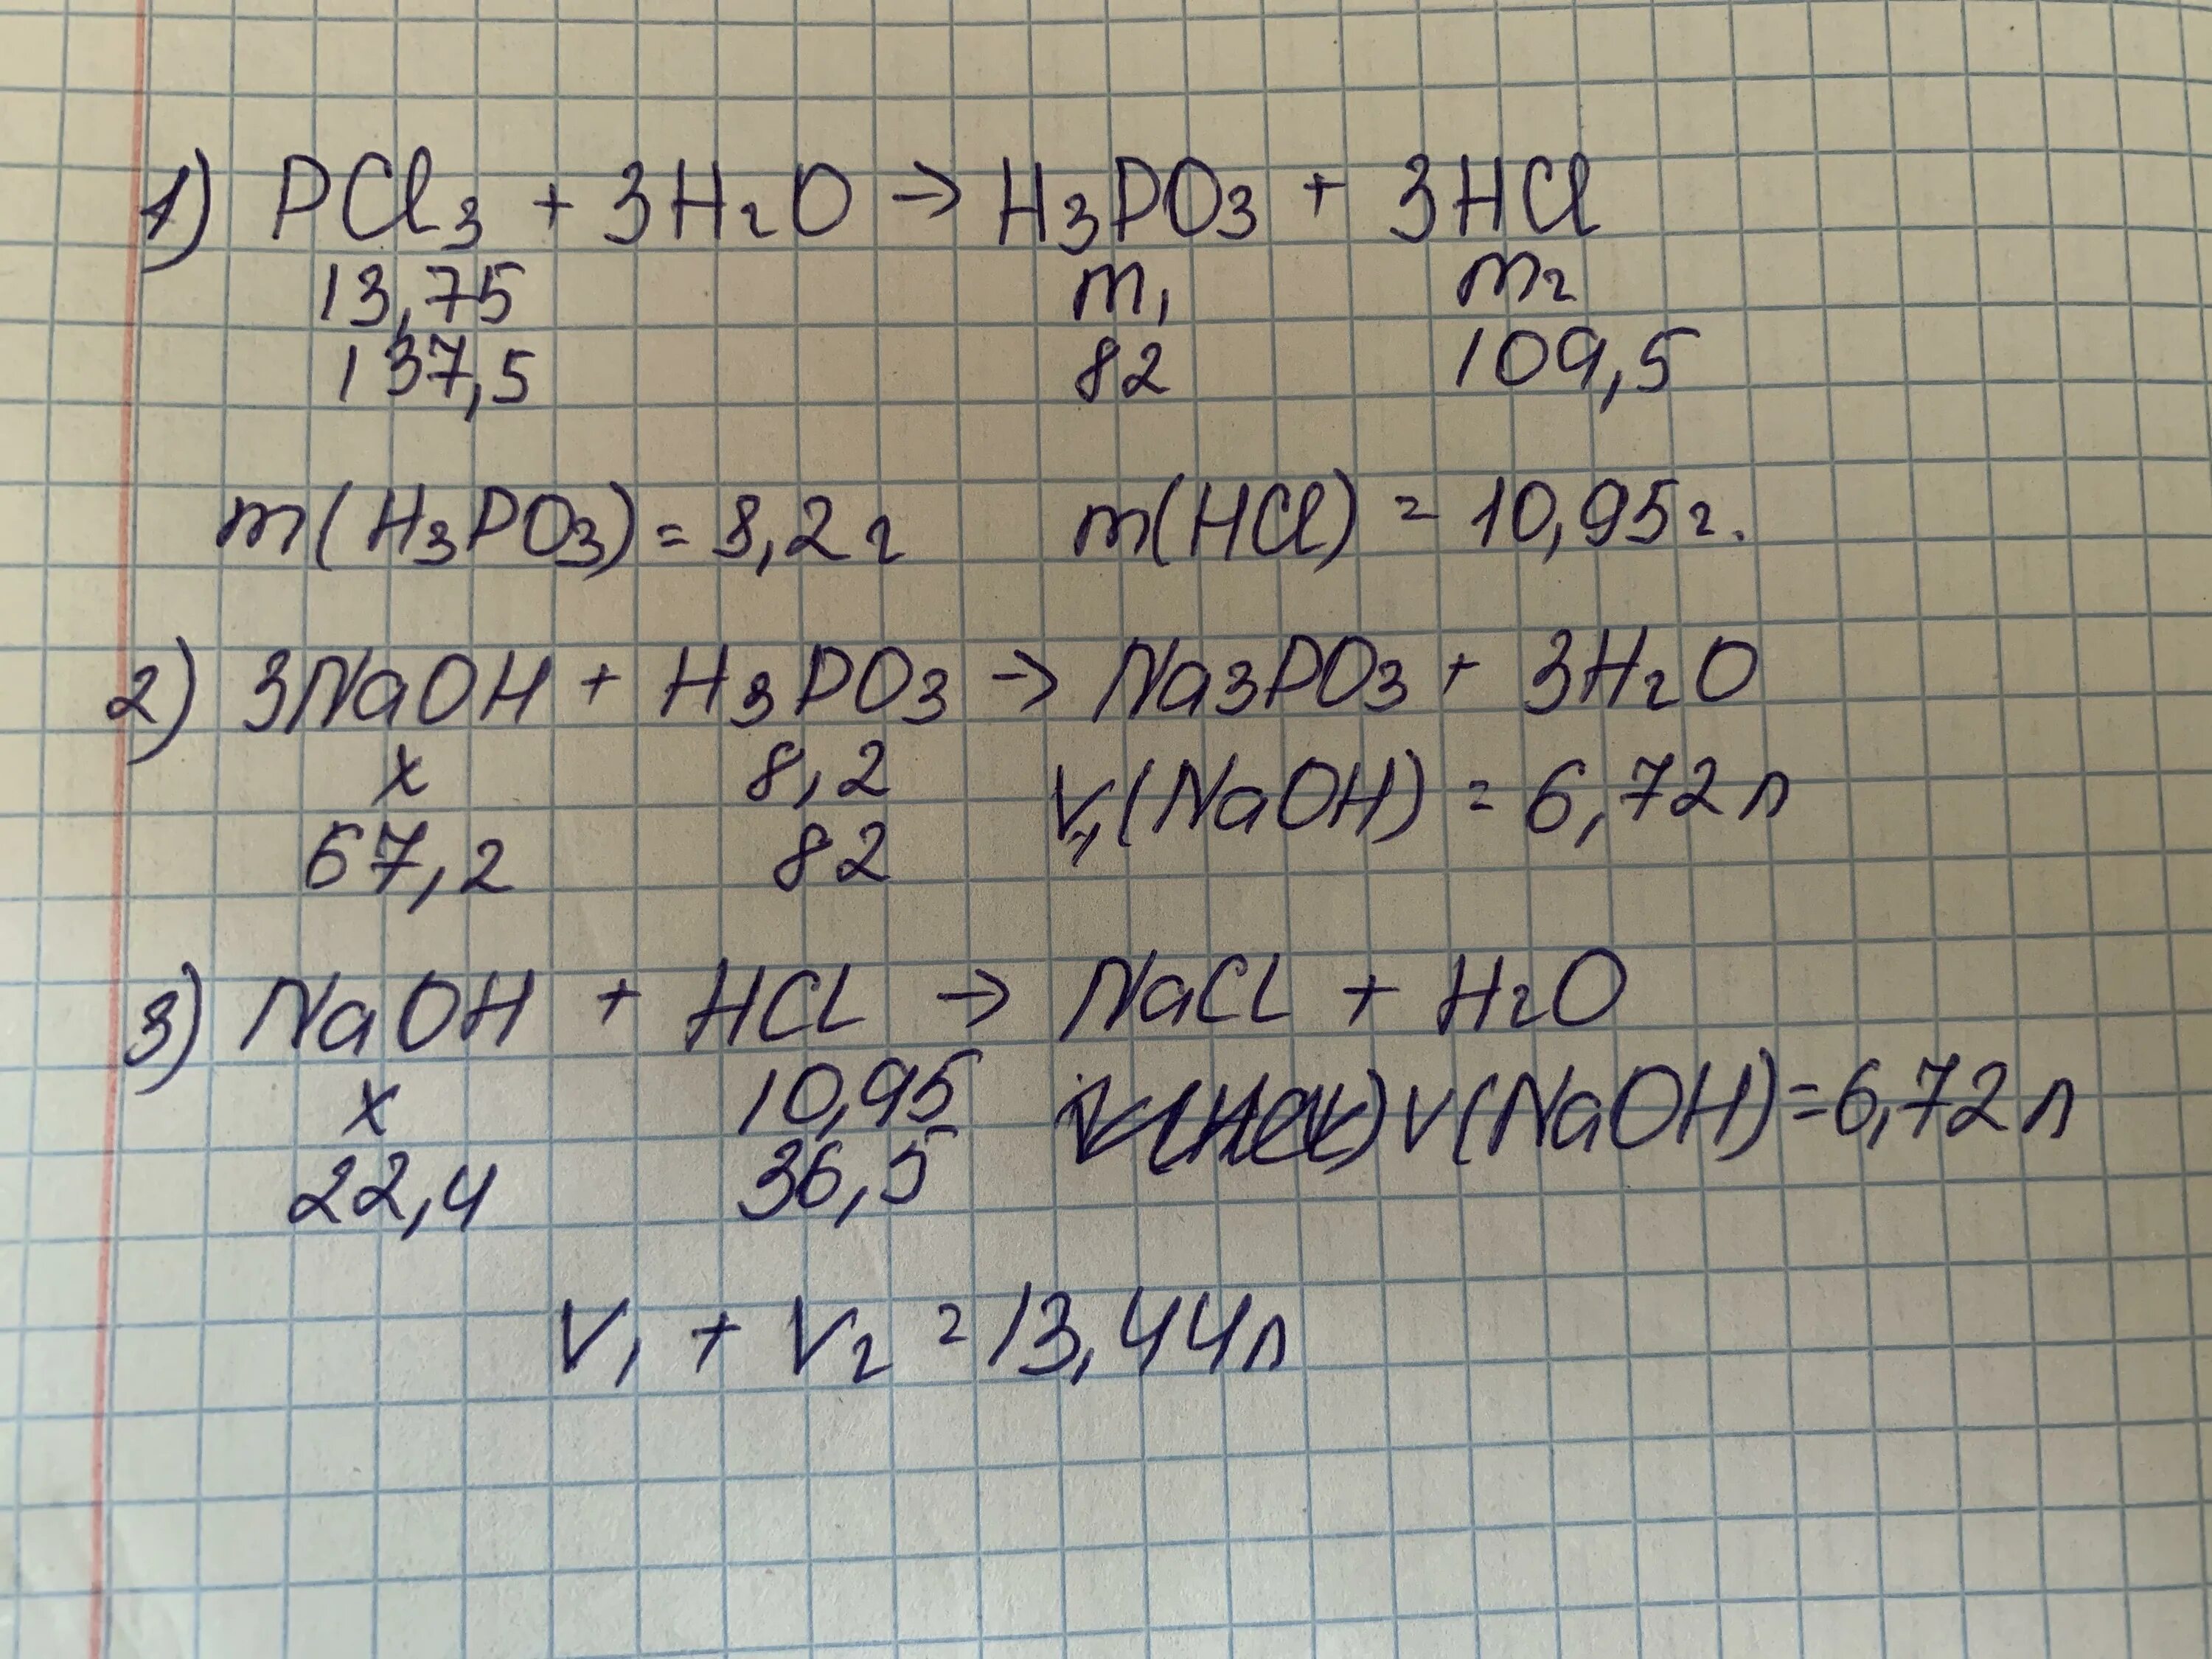 1) PCl₃ + 3H₂O → H₃PO₃ + 3HCl
13,75 m₁ m₂
137,5 82 109,5
m(H₃PO₃) = 8,2г m(HCl) = 10,95г.
2) 3NaOH + H₃PO₃ → Na₃PO₃ + 3H₂O
x 8,2 V₁(NaOH) = 6,72л
67,2 82
3) NaOH + HCl → NaCl + H₂O
x 10,95 V(NaOH) = 6,72л
22,4 36,5
V₁ + V₂ = 13,44л